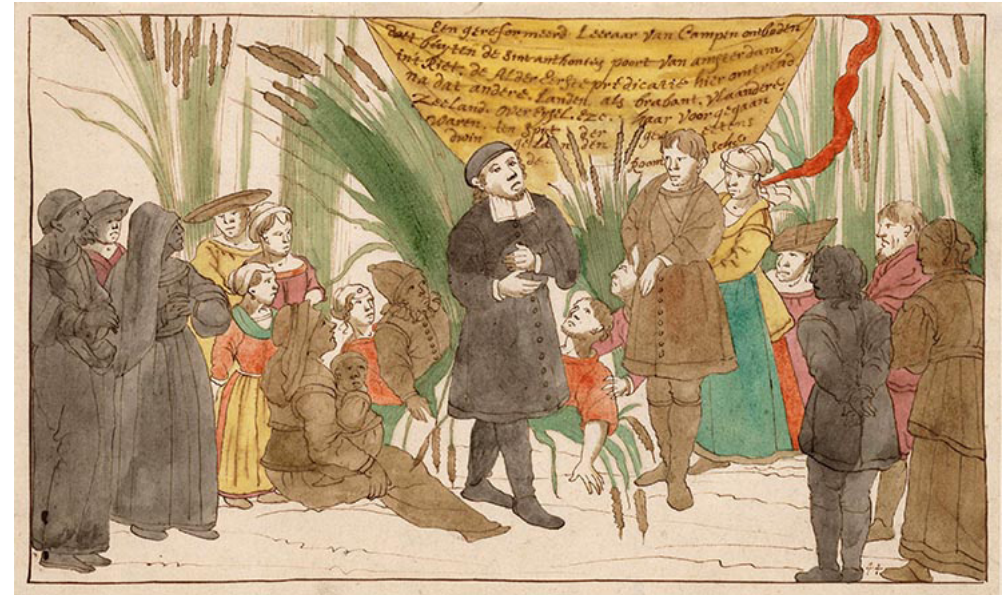 Een gereformeerd Leeraar van Campen ontboden
doet buyten de Sint anthonis poort van amsterdam
int Riet, de Alder Eerste predicatie hier omtrend
na dat andere Landen als brabant, Vlaandere,
Zeeland overeysel, etc. haar voorgegaan
Waren, ten Spijt der
dwin gelanden
de Room sche